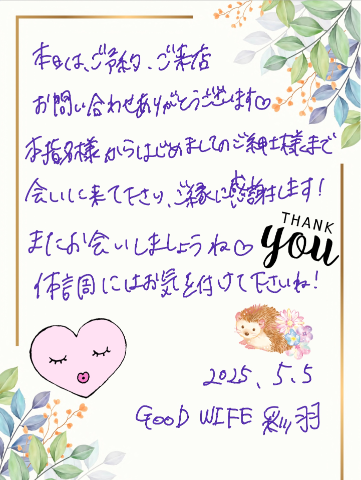 本日は、ご予約、ご来店
お問い合わせありがとうございます♡
本指名様からはじめましてのご紳士様まで
会いに来て下さり、ご縁に感謝します!
またお会いしましょうね♡
THANK
you
体調にはお気を付けて下さいね!
2025.5.5
GOOD WIFE 彩羽